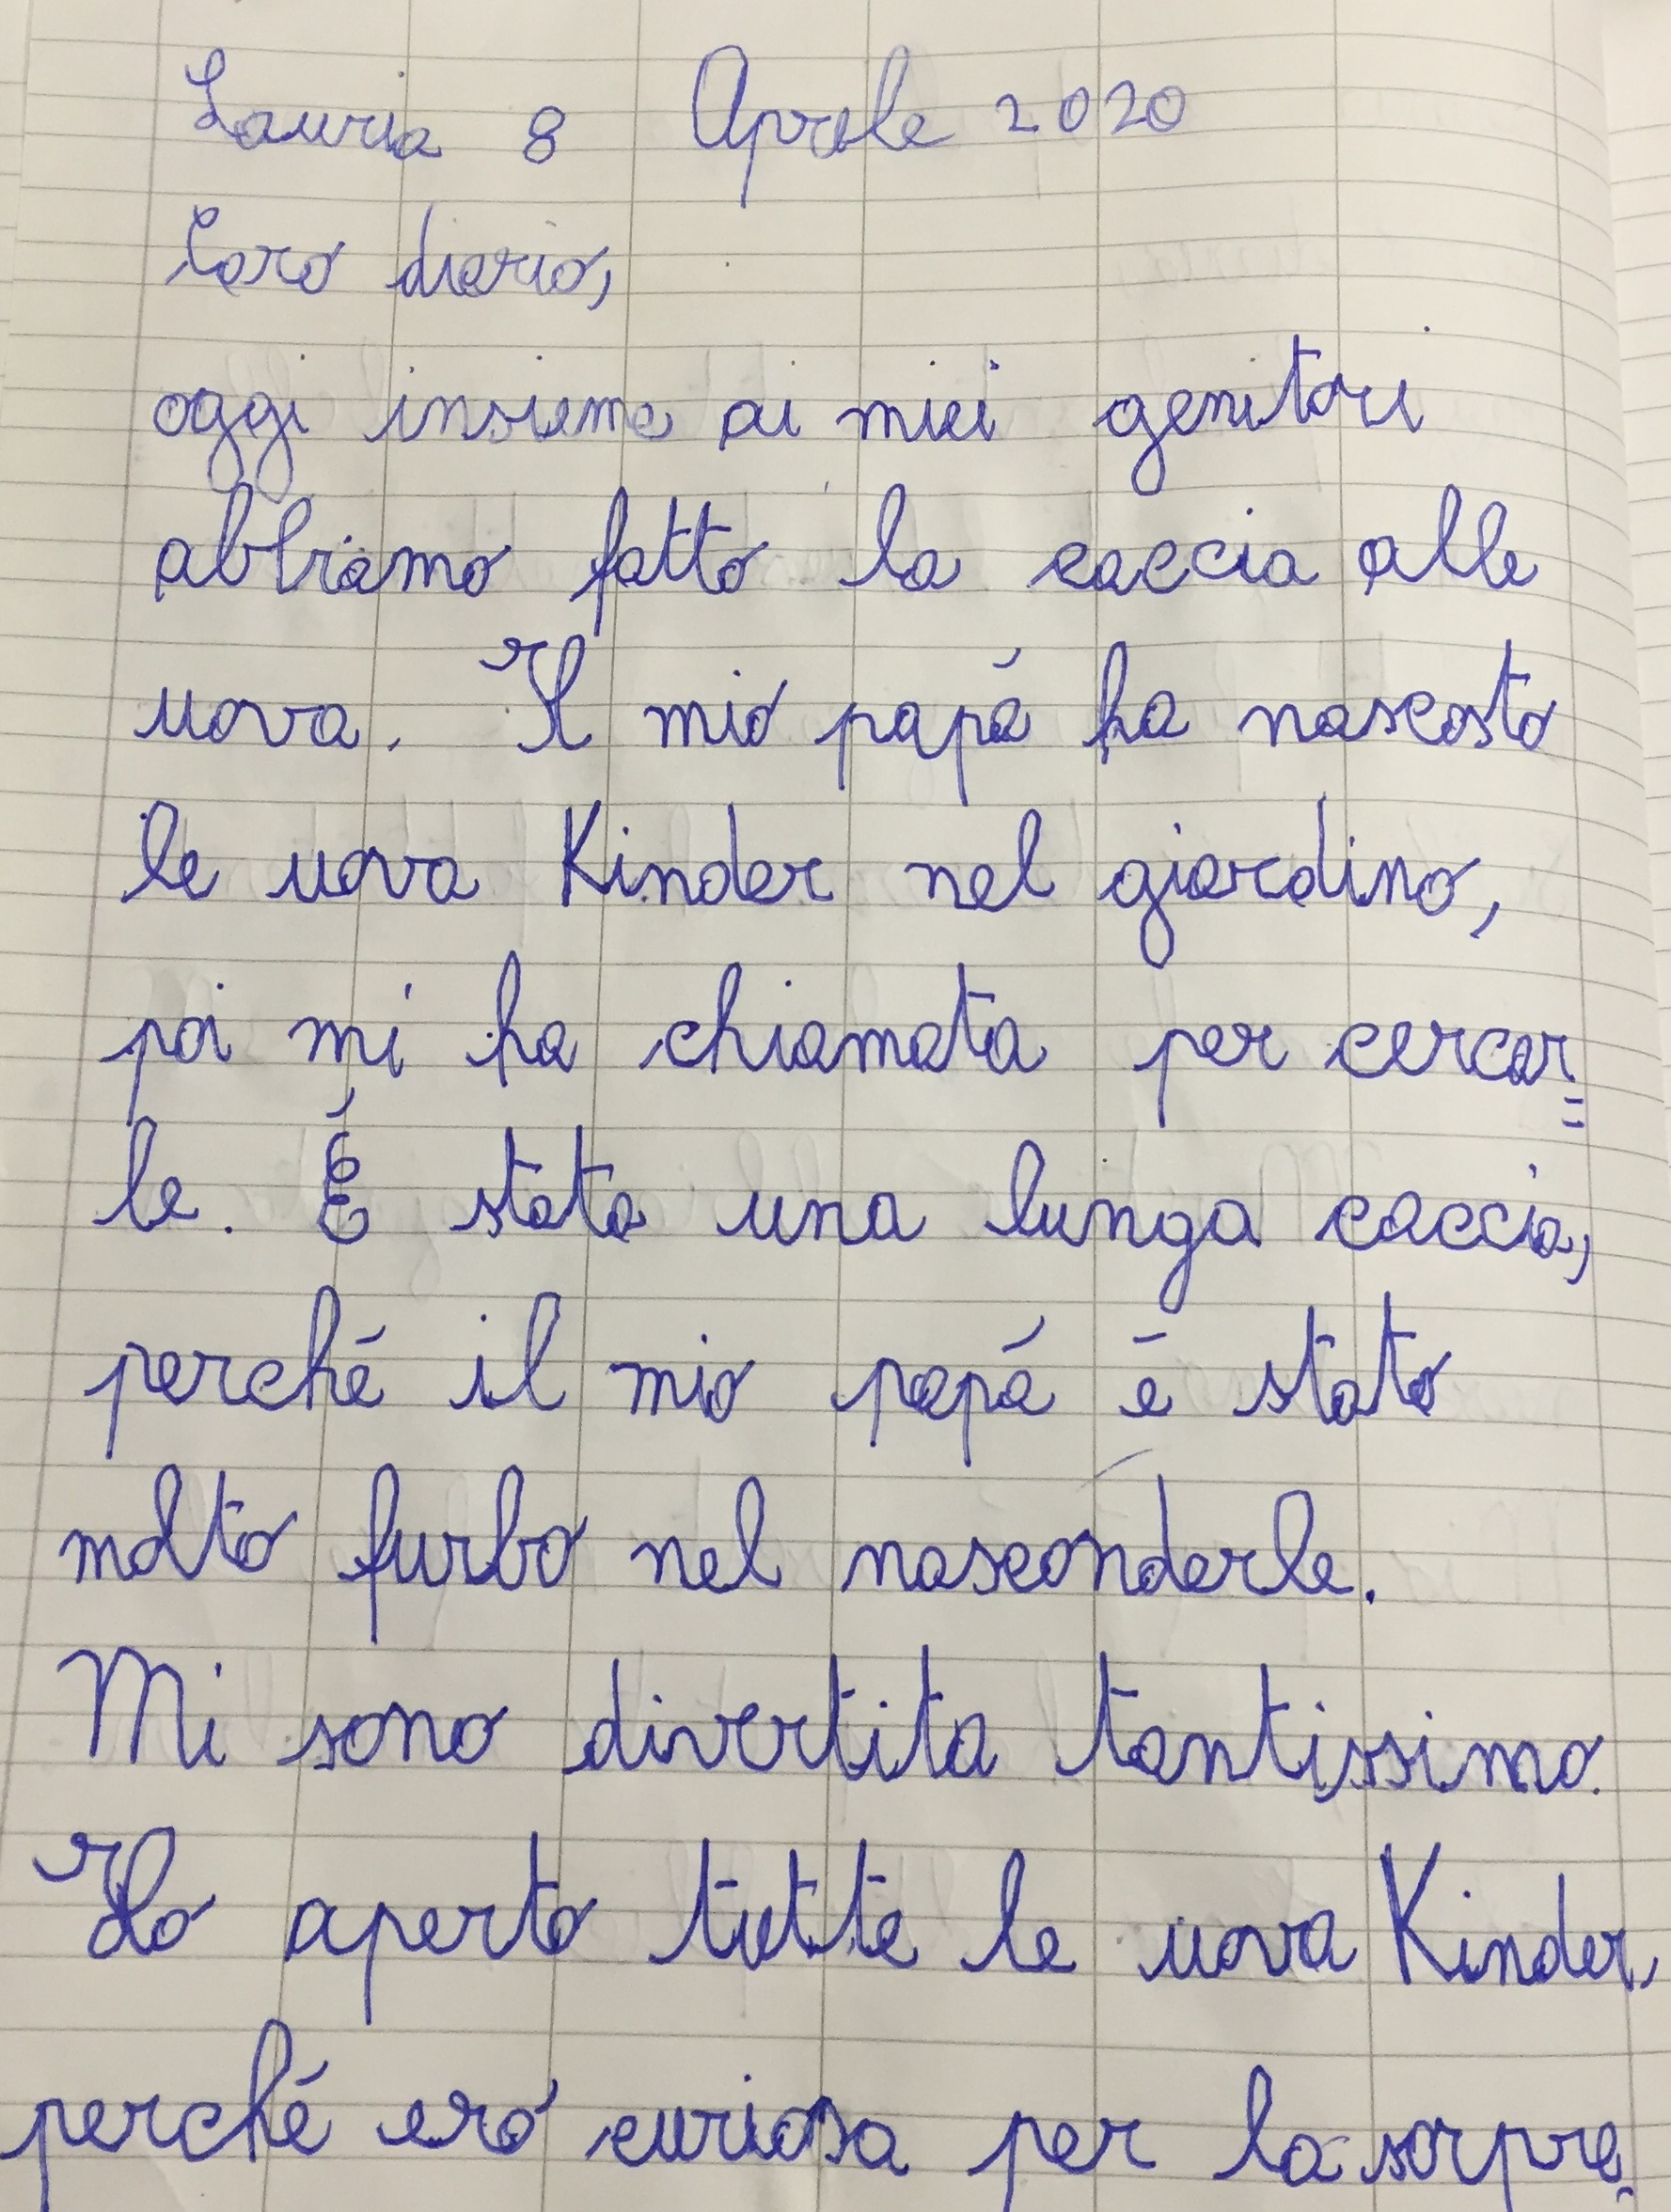 Lauria 8 Aprile 2020
Caro diario,
oggi insieme ai miei genitori
abbiamo fatto la caccia alle
uova. Il mio papá ha nascosto
le uova Kinder nel giardino,
poi mi ha chiamata per cercar=
le. É stata una lunga caccia,
perché il mio papá é stato
molto furbo nel nasconderle.
Mi sono divertita tantissimo.
Ho aperto tutte le uova Kinder,
perché ero curiosa per la sorpre